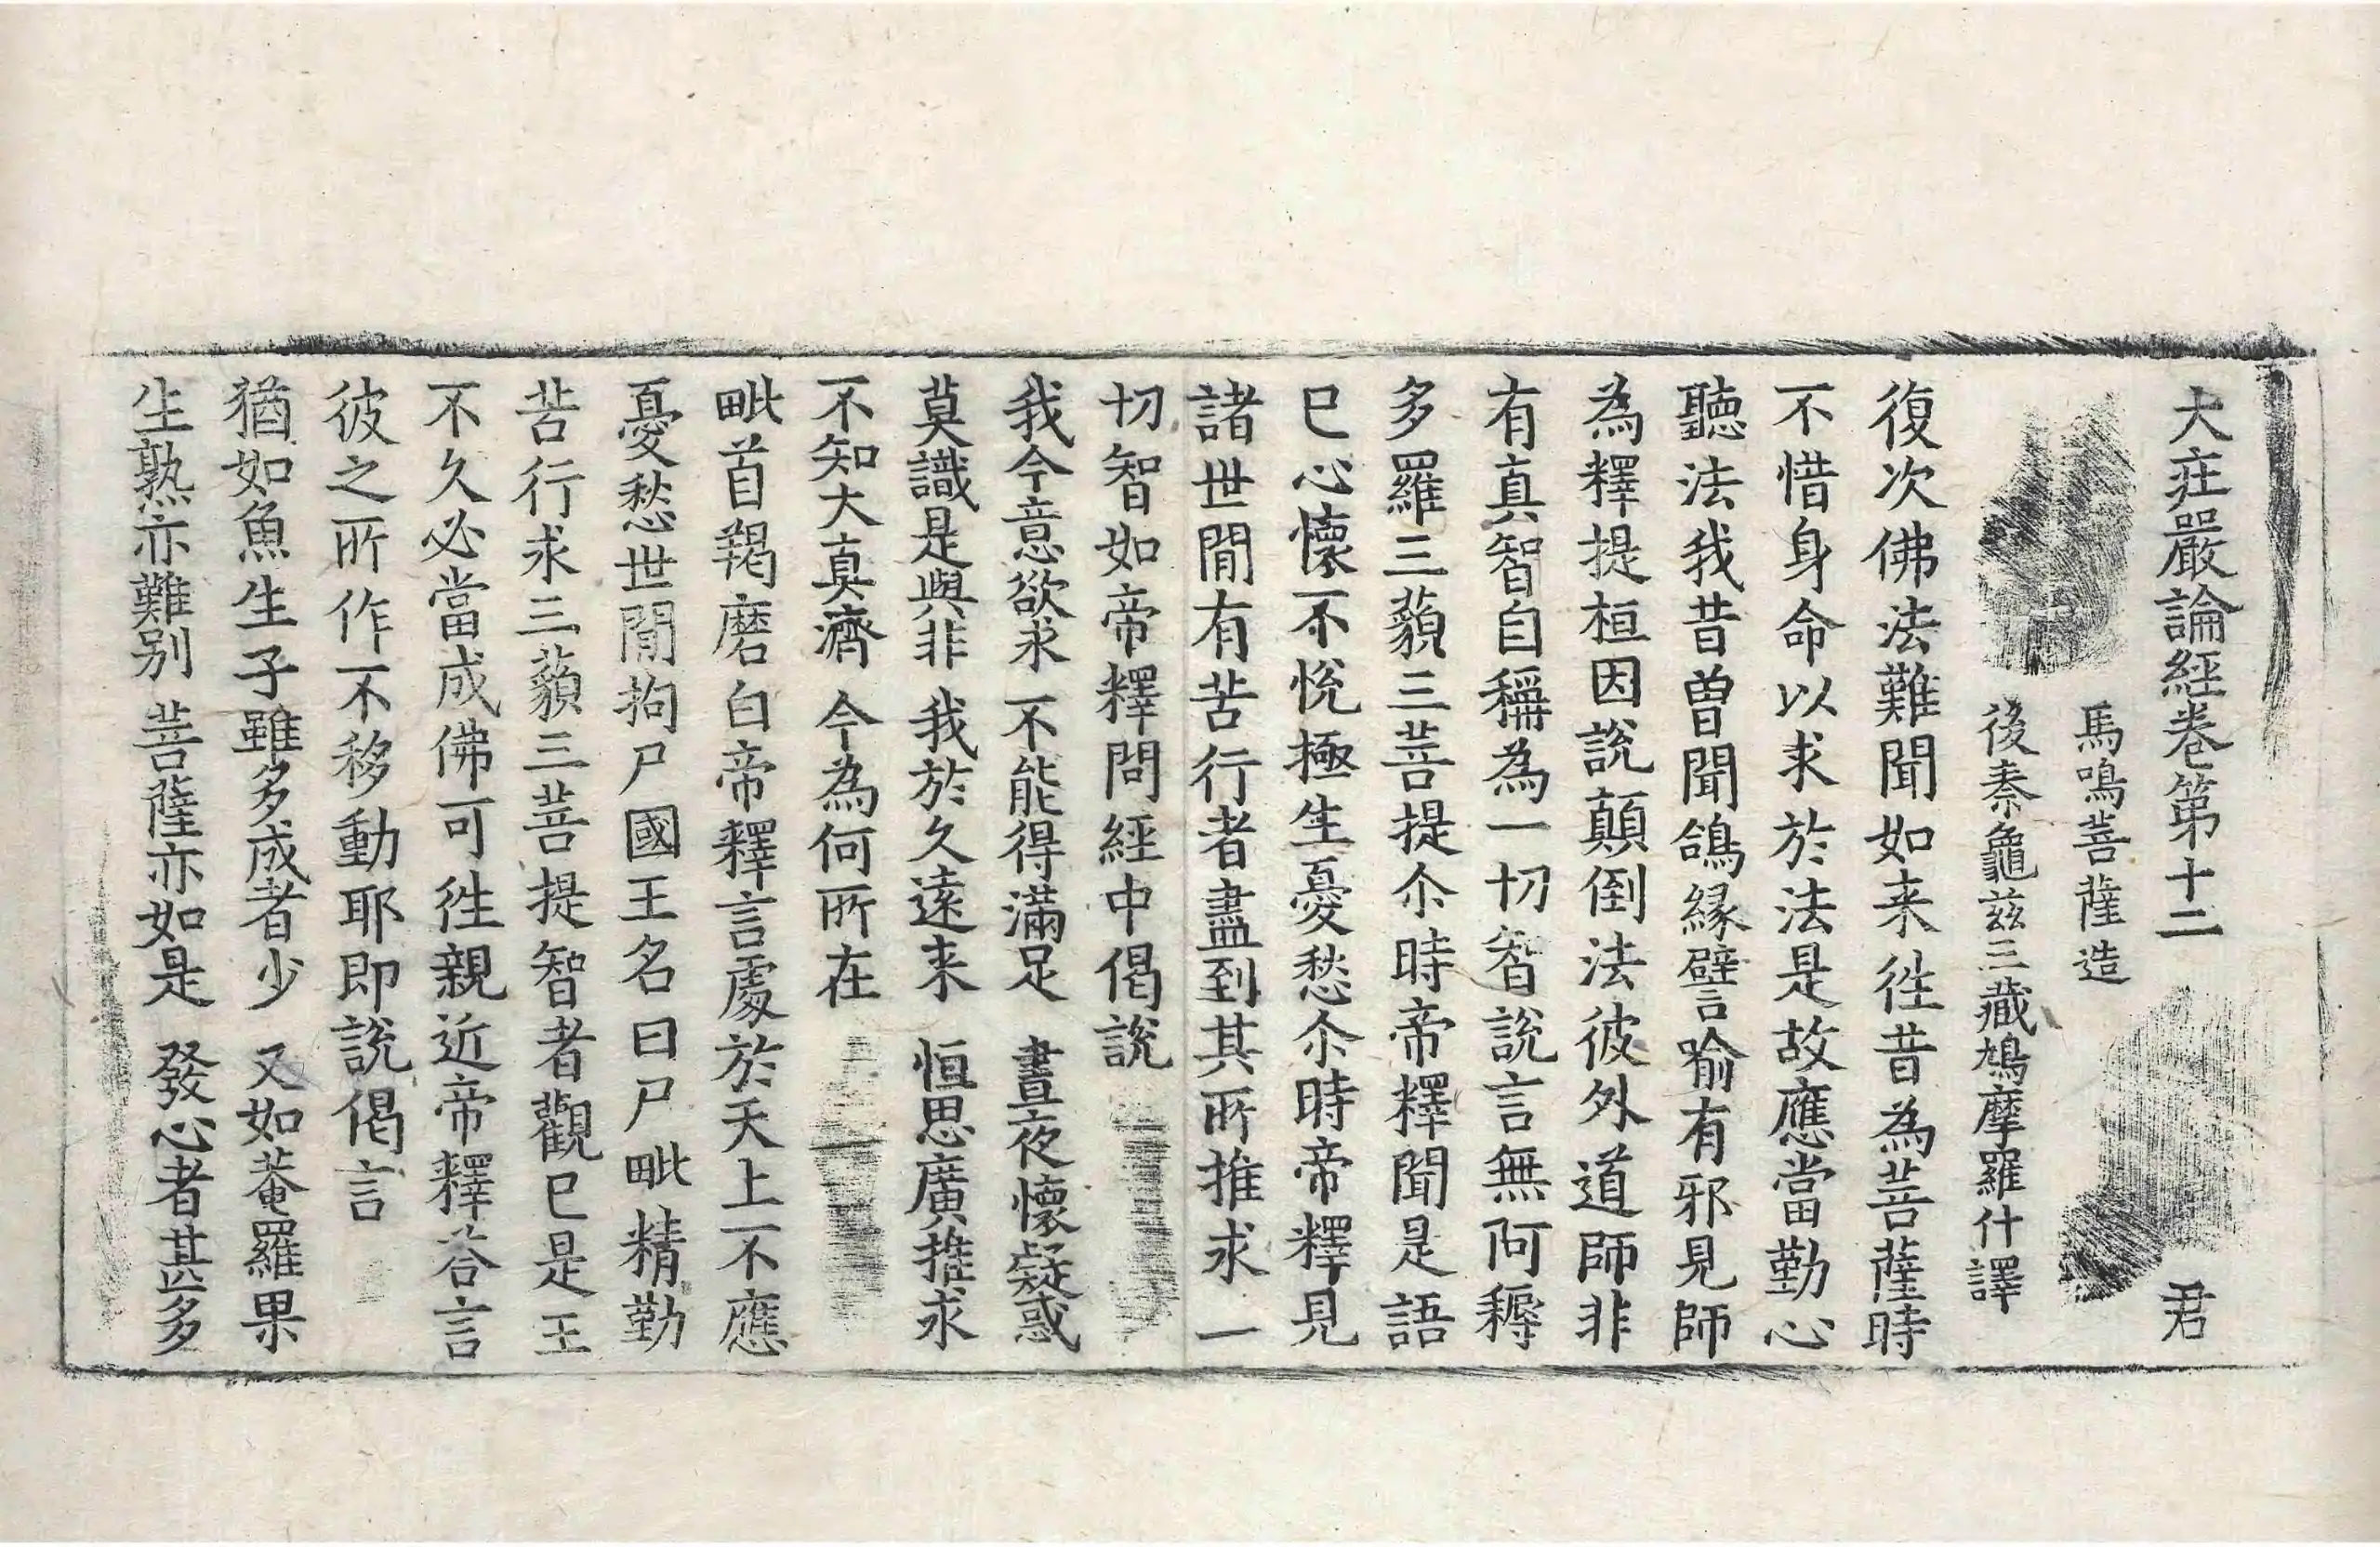 大莊嚴論經卷第十二 君
馬鳴菩薩造
後秦龜兹三藏鳩摩羅什譯
復次佛法難聞如来徃昔為菩薩時
不惜身命以求於法是故應當勤心
聽法我昔曾聞鴿縁譬喻有邪見師
為釋提桓因說顛倒法彼外道師非
有真智自稱為一切智說言無阿耨
多羅三藐三菩提尒時帝釋聞是語
已心懷不悅極生憂愁尒時帝釋見
諸世閒有苦行者盡到其所推求一
切智如帝釋問經中偈說
我今意欲求 不能得滿足 晝夜懷疑惑
莫識是與非 我於久遠来 恒思廣推求
不知大真濟 今為何所在
毗首羯磨白帝釋言處於天上不應
憂愁世閒拘尸國王名曰尸毗精勤
苦行求三藐三菩提智者觀已是王
不久必當成佛可徃親近帝釋荅言
彼之所作不移動耶即說偈言
猶如魚生子 雖多成者少 又如菴羅果
生熟亦難别 菩薩亦如是 發心者甚多